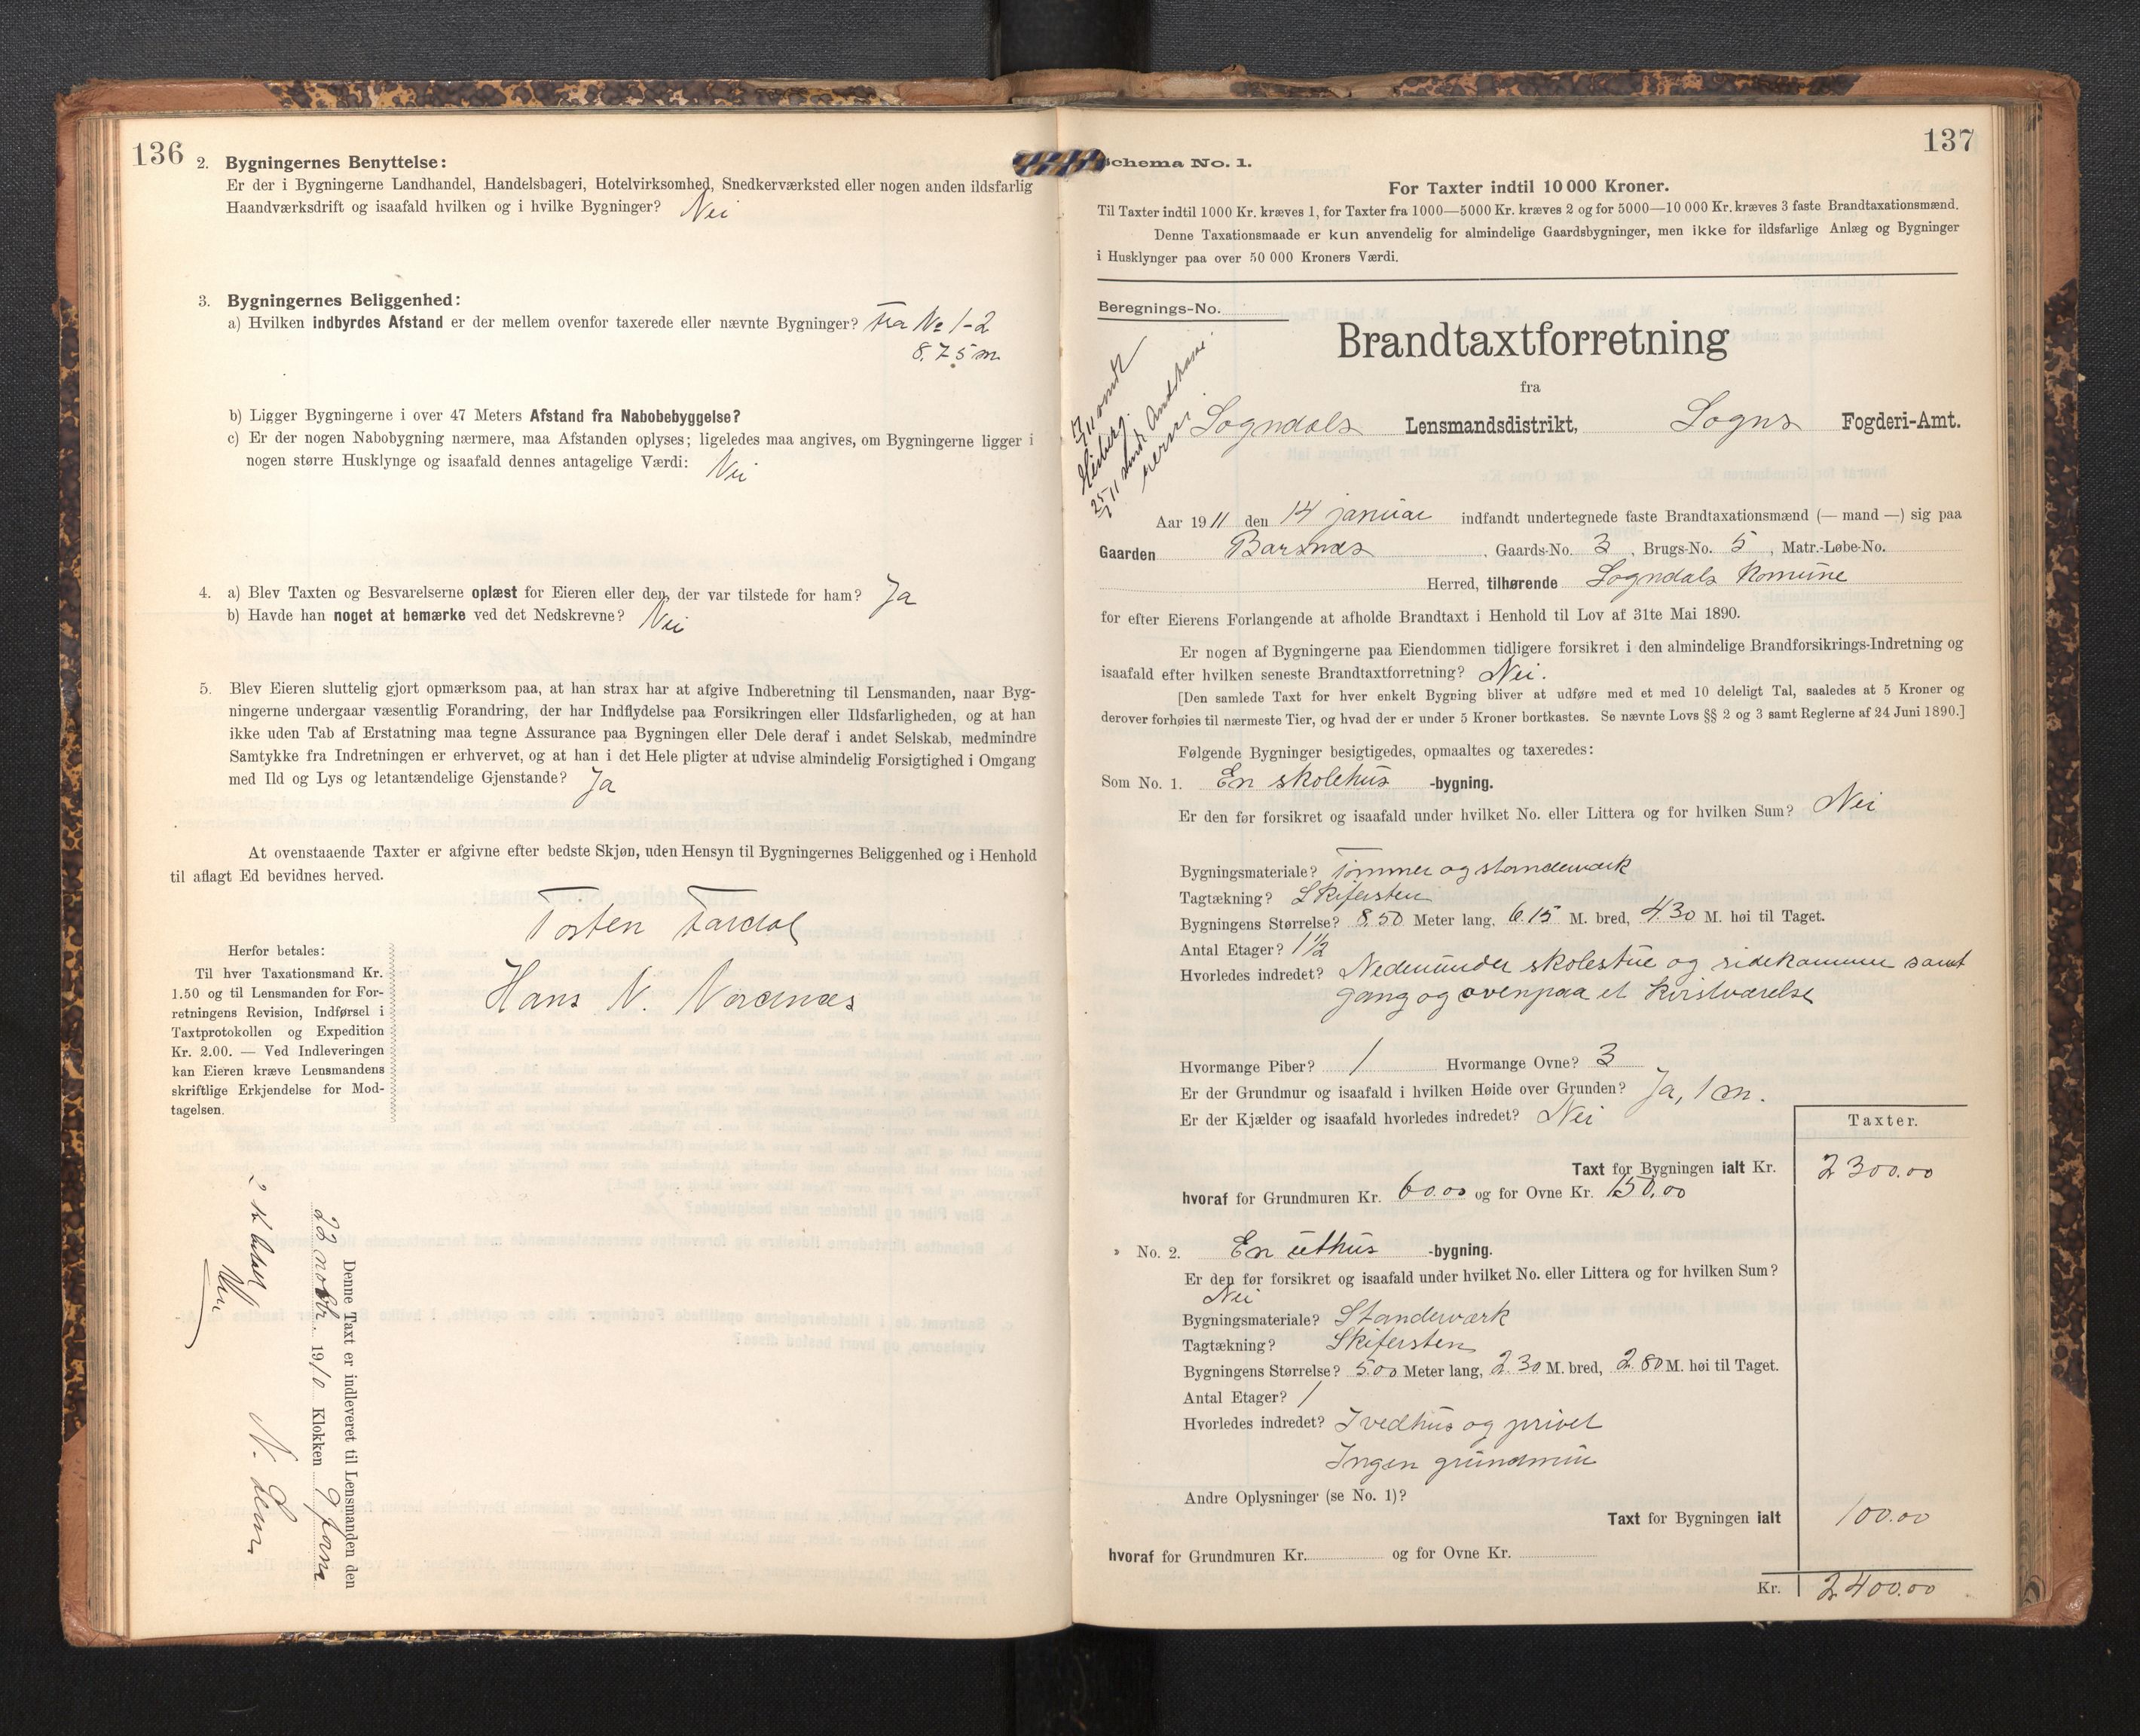 136
2. Bygningernes Benyttelse:
Er der i Bygningerne Landhandel, Handelsbageri, Hotelvirksomhed, Snedkerværksted eller nogen anden ildsfarlig
Haandværksdrift og isaafald hvilken og i hvilke Bygninger? Nei
3. Bygningernes Beliggenhed:
a) Hvilken indbyrdes Afstand er der mellem ovenfor taxerede eller nævnte Bygninger? Fra No 1-2
8.75 m
b) Ligger Bygningerne i over 47 Meters Afstand fra Nabobebyggelse?
c) Er der nogen Nabobygning nærmere, maa Afstanden oplyses; ligeledes maa angives, om Bygningerne ligger i
nogen større Husklynge og isaafald dennes antagelige Værdi: Nei
4. a) Blev Taxten og Besvarelserne oplæst for Eieren eller den, der var tilstede for ham? Ja
b) Havde han noget at bemærke ved det Nedskrevne? Nei
5. Blev Eieren sluttelig gjort opmærksom paa, at han strax har at afgive Indberetning til Lensmanden, naar Byg-
ningerne undergaar væsentlig Forandring, der har Indflydelse paa Forsikringen eller Ildsfarligheden, og at han
ikke uden Tab af Erstatning maa tegne Assurance paa Bygningen eller Dele deraf i andet Selskab, medmindre
Samtykke fra Indretningen er erhvervet, og at han i det Hele pligter at udvise almindelig Forsigtighed i Omgang
med Ild og Lys og letantændelige Gjenstande? Ja
At ovenstaaende Taxter er afgivne efter bedste Skjøn, uden Hensyn til Bygningernes Beliggenhed og i Henhold
til aflagt Ed bevidnes herved.
Tosten Fardal
Hans N. Nordnæs
Herfor betales:
Til hver Taxationsmand Kr.
1.50 og til Lensmanden for For-
retningens Revision, Indførsel i
Taxtprotokollen og Expedition
Kr. 2.00. — Ved Indleveringen
kan Eieren kræve Lensmandens
skriftlige Erkjendelse for Mod-
tagelsen.
Denne Taxt er indleveret til Lensmanden den
23 novbr 1910 Klokken 9 form
N. Lem
2 kr betalt
137
Schema No. 1.
For Taxter indtil 10 000 Kroner.
Til Taxter indtil 1000 Kr. kræves 1, for Taxter fra 1000—5000 Kr. kræves 2 og for 5000—10 000 Kr. kræves 3 faste Brandtaxationsmænd.
Denne Taxationsmaade er kun anvendelig for almindelige Gaardsbygninger, men ikke for ildsfarlige Anlæg og Bygninger
i Husklynger paa over 50 000 Kroners Værdi.
Beregnings-No.
Brandtaxtforretning
fra
Sogndals Lensmandsdistrikt, Sogns Fogderi-Amt.
Aar 1911 den 14 januar indfandt undertegnede faste Brandtaxationsmænd (— mand —) sig paa
Gaarden Barsnæs, Gaards-No. 3, Brugs-No. 5, Matr.-Løbe-No.
Herred, tilhørende Sogndals Komune
for efter Eierens Forlangende at afholde Brandtaxt i Henhold til Lov af 31te Mai 1890.
Er nogen af Bygningerne paa Eiendommen tidligere forsikret i den almindelige Brandforsikrings-Indretning og
isaafald efter hvilken seneste Brandtaxtforretning? Nei.
[Den samlede Taxt for hver enkelt Bygning bliver at udføre med et med 10 deleligt Tal, saaledes at 5 Kroner og
derover forhøies til nærmeste Tier, og hvad der er under 5 Kroner bortkastes. Se nævnte Lovs §§ 2 og 3 samt Reglerne af 24 Juni 1890.]
Følgende Bygninger besigtigedes, opmaaltes og taxeredes:
Som No. 1. En skolehus -bygning.
Er den før forsikret og isaafald under hvilket No. eller Littera og for hvilken Sum? Nei
Bygningsmateriale? Tømmer og standerværk
Tagtækning? Skifersten
Bygningens Størrelse? 8.50 Meter lang, 6.15 M. bred, 4.30 M. høi til Taget.
Antal Etager? 1½
Hvorledes indredet? Nedenunder skolestue og sidekammer samt
gang og ovenpaa et kvistværelse
Hvormange Piber? 1 Hvormange Ovne? 3
Er der Grundmur og isaafald i hvilken Høide over Grunden? Ja, 1 m.
Er der Kjælder og isaafald hvorledes indredet? Nei
Taxter.
Taxt for Bygningen ialt Kr. 2300.00
hvoraf for Grundmuren Kr. 60.00 og for Ovne Kr. 150.00
» No. 2. En uthus -bygning.
Er den før forsikret og isaafald under hvilket No. eller Littera og for hvilken Sum?
Nei
Bygningsmateriale? Standerværk
Tagtækning? Skifersten
Bygningens Størrelse? 5.00 Meter lang, 2.30 M. bred, 2.80 M. høi til Taget.
Antal Etager? 1
Hvorledes indredet? I vedhus og privet
Ingen grundmur
Andre Oplysninger (se No. 1)?
Taxt for Bygningen ialt 100.00
hvoraf for Grundmuren Kr. og for Ovne Kr.
Kr. 2400.00